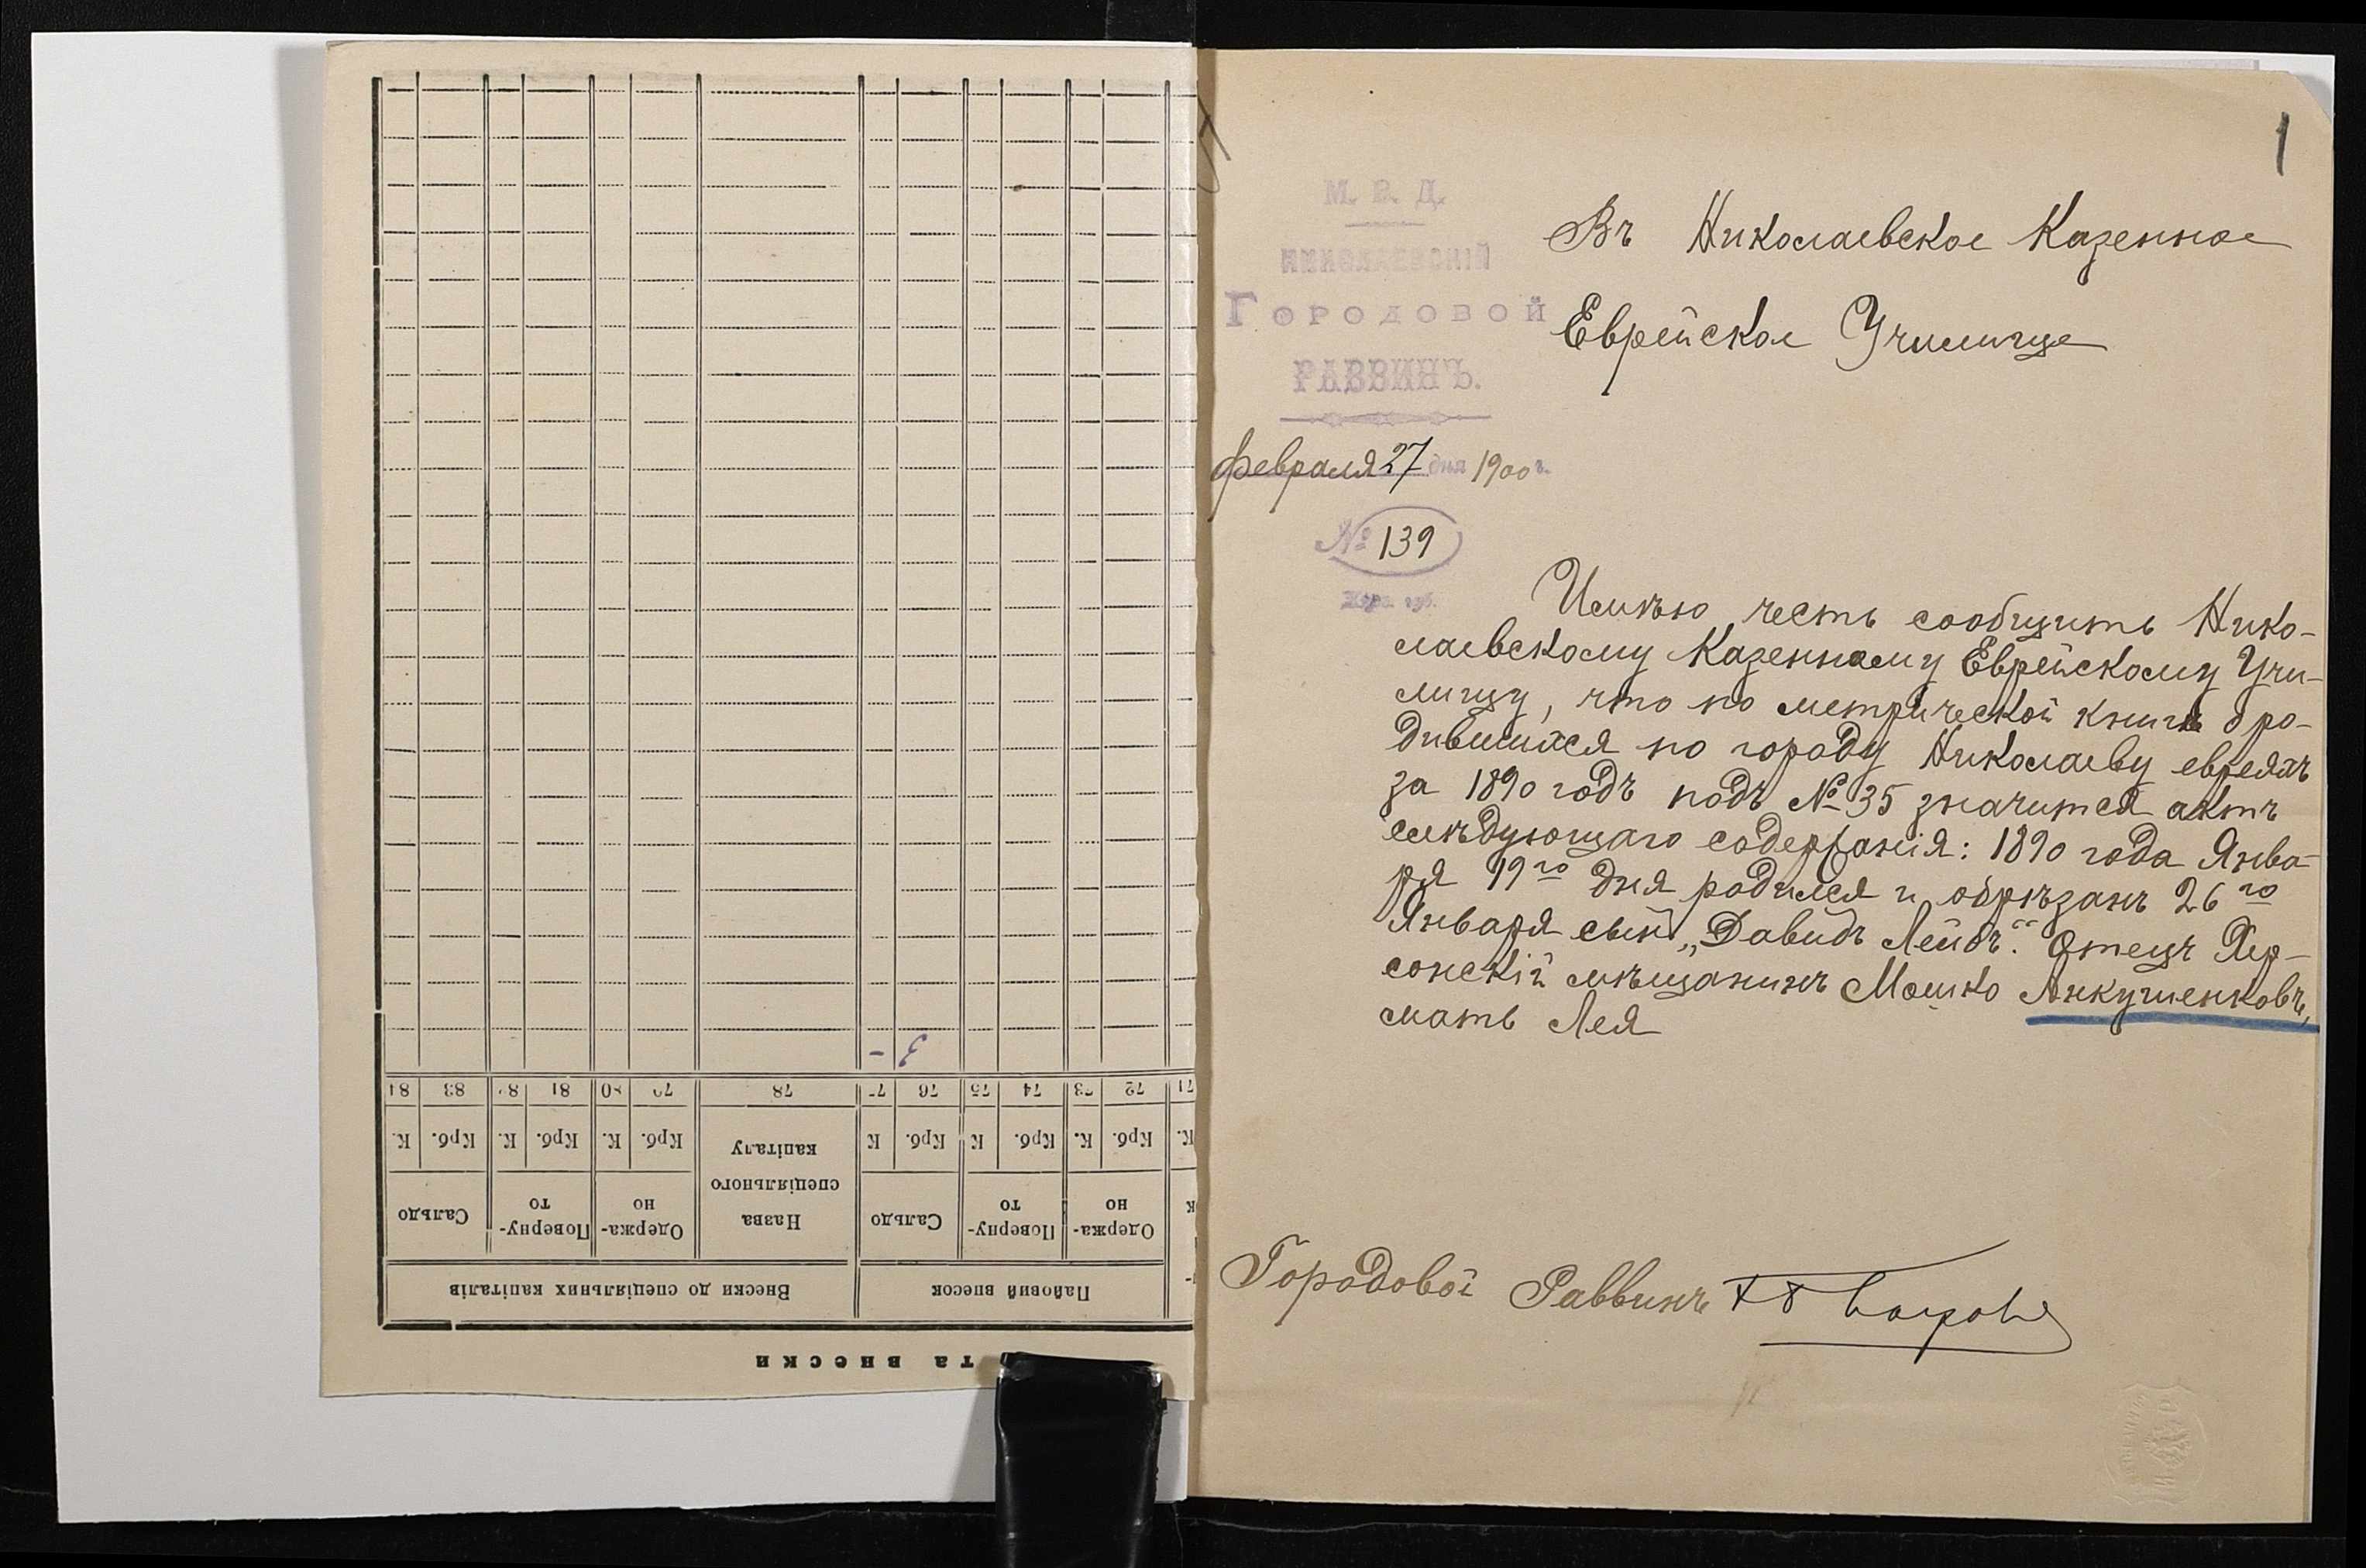 та внески
Внески до спеціяльних капіталів
Пайовий внесок
Сальдо
Поверну-
то
Одержа-
но
Назва
спеціяльного
капіталу
Сальдо
Поверну-
то
Одержа-
но
К. Крб. К. Крб. К. Крб. К Крб. К Крб. К. Крб. К.
84 83 81 78 76 75 74 72 71
1
М. В. Д.
НИКОЛАЕВСКІЙ
ГОРОДОВОЙ
РАВВИНЪ.
Февраля 27 дня 1900 г.
№ 139
Херс. губ.
Въ Николаевское Казенное
Еврейское Училище
Имѣю честь сообщить Нико-
лаевскому Казенному Еврейскому Учи-
лищу, что по метрической книгѣ о ро-
дившихся по городу Николаеву евреяхъ
за 1890 годъ подъ № 35 значится актъ
слѣдующаго содержанія: 1890 года Янва-
ря 19го дня родился и обрѣзанъ 26го
Января сынъ „Давидъ Лейбъ“. Отецъ Хер-
сонскій мѣщанинъ Мошко Анкушенковъ,
мать Лея
Городовой Раввинъ